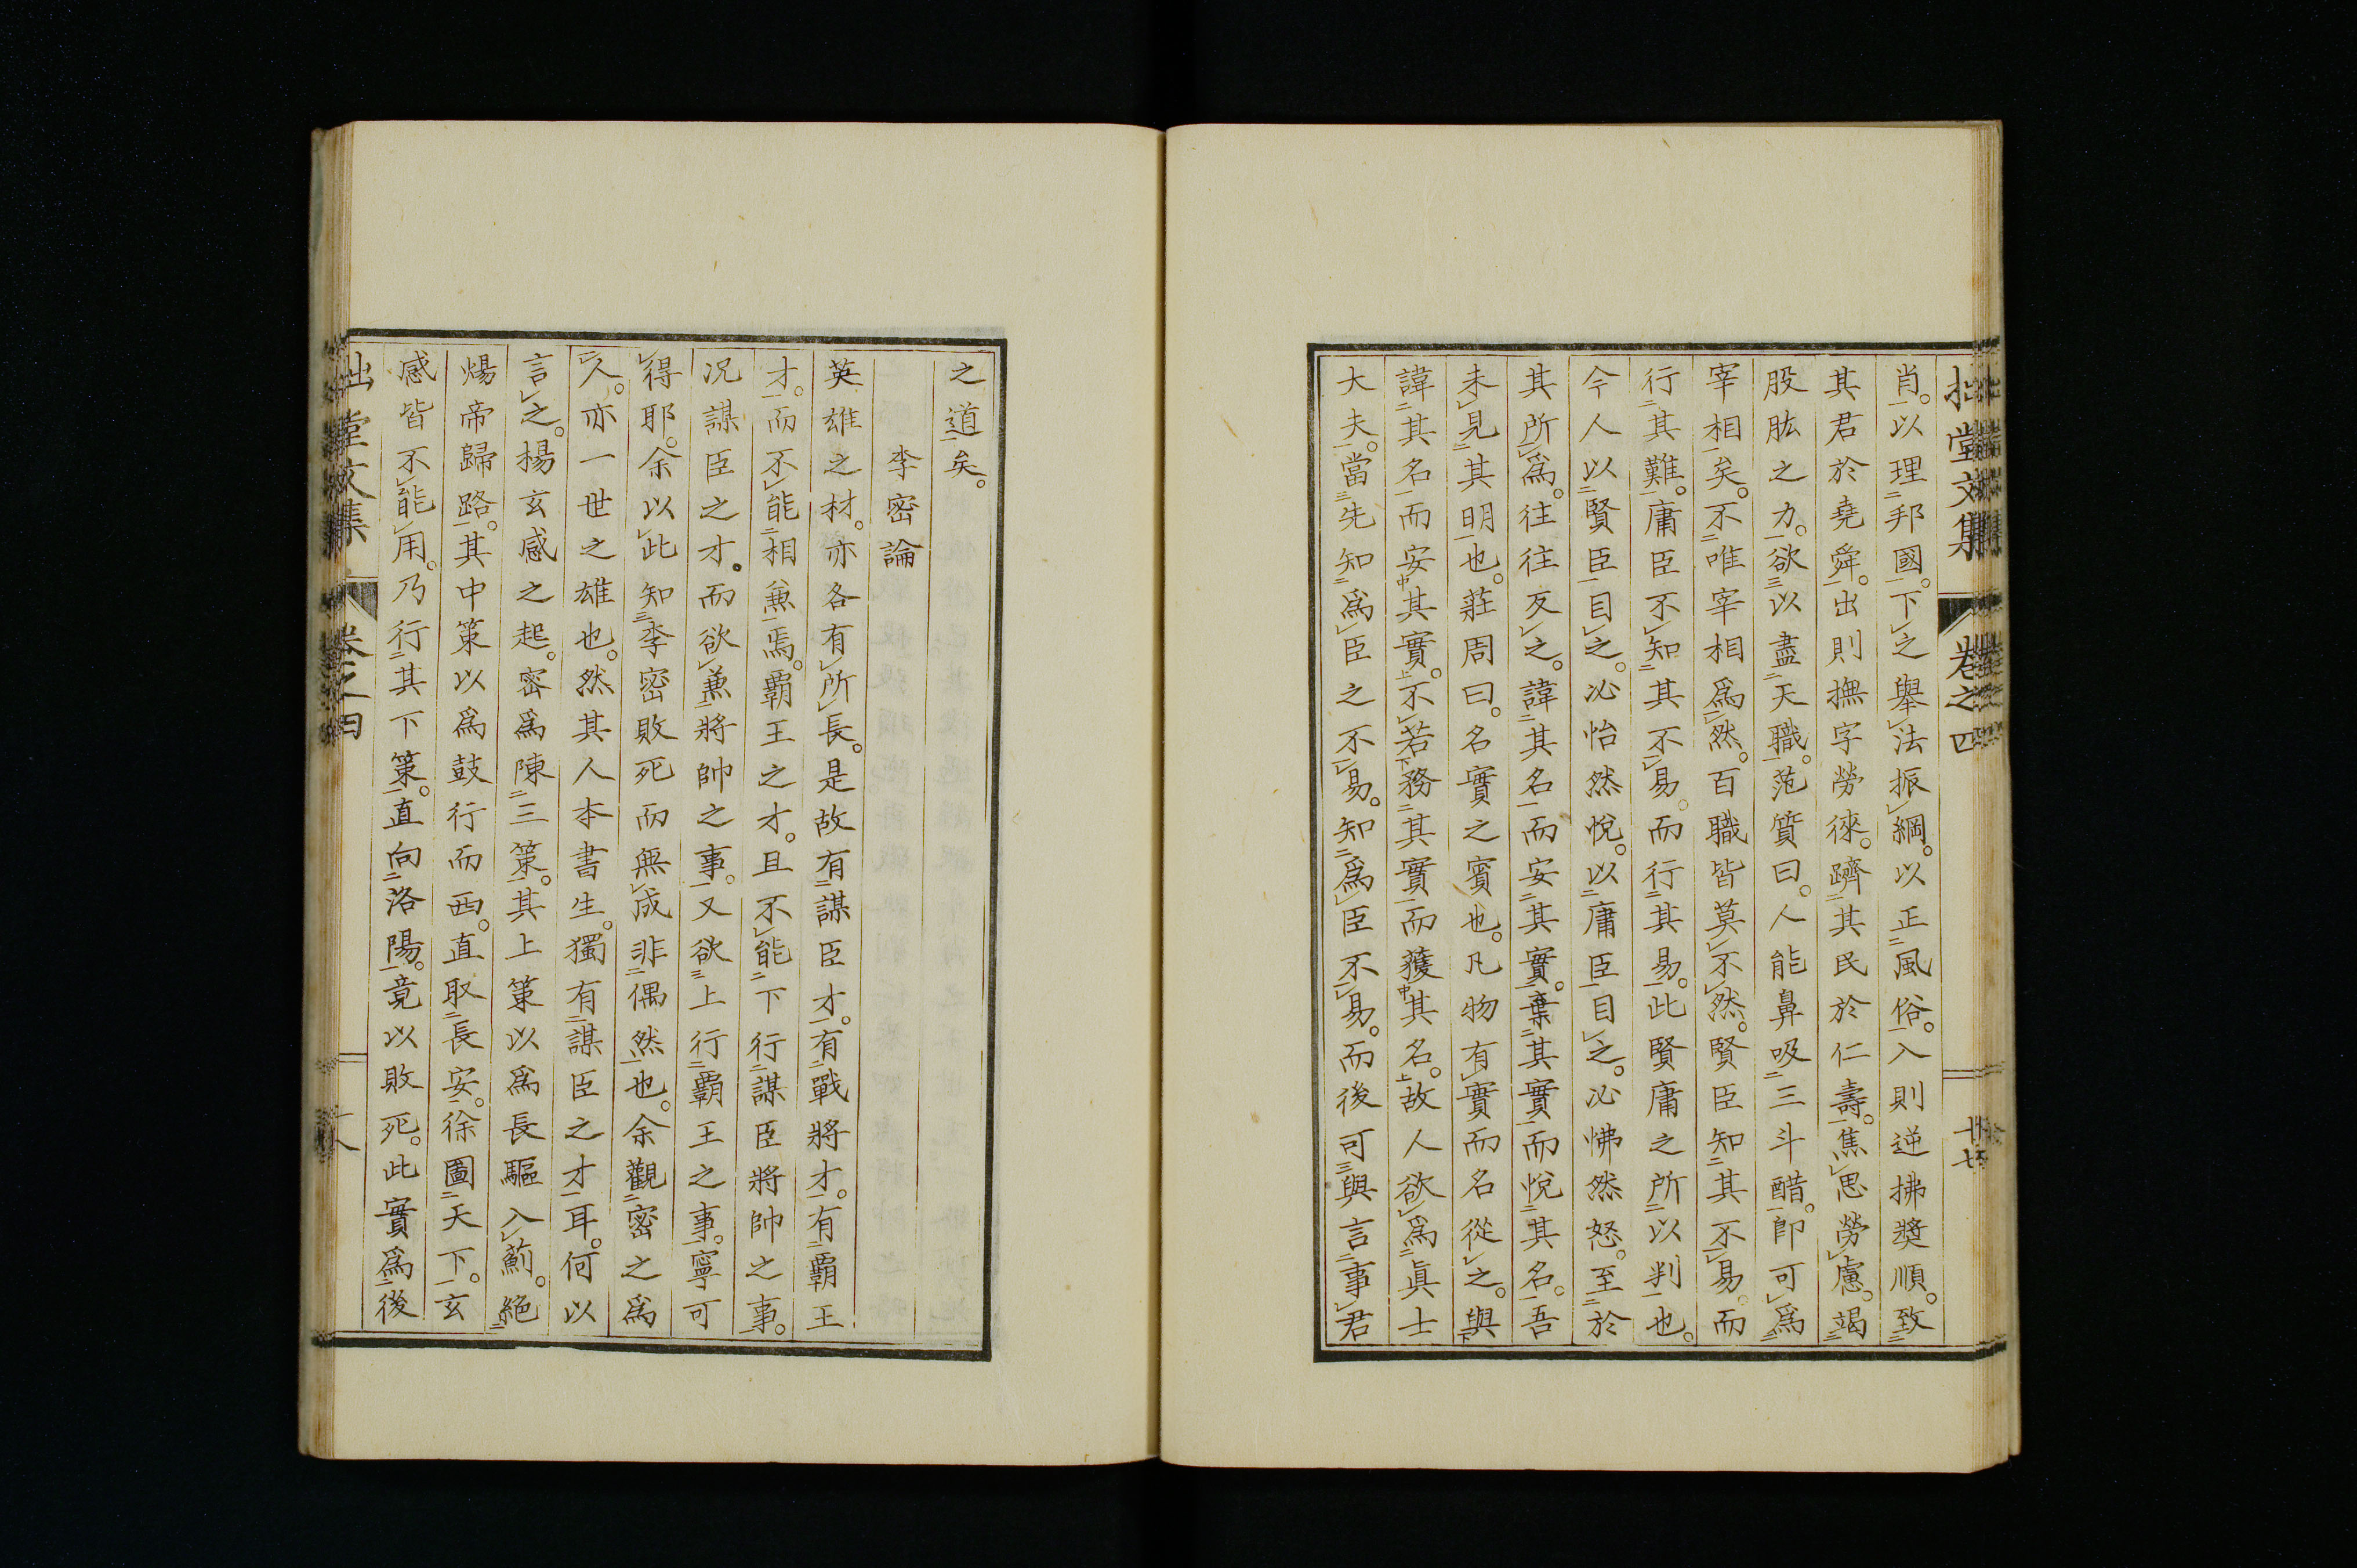 拙堂文集 卷之四 十七
肖。以理邦國。下之舉法振綱。以正風俗。入則逆拂獎順。致
其君於堯舜。出則撫字勞徠。躋其民於仁壽。焦思勞慮。竭
股肱之力。欲以盡天職。范質曰。人能鼻吸三斗醋。卽可爲
宰相矣。不唯宰相爲然。百職皆莫不然。賢臣知其不易。而
行其難。庸臣不知其不易。而行其易。此賢庸之所以判也。
今人以賢臣目之。必怡然悅。以庸臣目之。必怫然怒。至於
其所爲。往往反之。諱其名而安其實。棄其實而悅其名。吾
未見其明也。莊周曰。名實之賓也。凡物有實而名從之。與
諱其名而安其實。不若務其實而獲其名。故人欲爲眞士
大夫。當先知爲臣之不易。知爲臣不易。而後可與言事君
之道矣。
李密論
英雄之材。亦各有所長。是故有謀臣才。有戰將才。有霸王
才。而不能相兼焉。霸王之才。且不能下行謀臣將帥之事。
况謀臣之才。而欲兼將帥之事。又欲上行霸王之事。寧可
得耶。余以此知李密敗死而無成非偶然也。余觀密之爲
人。亦一世之雄也。然其人本書生。獨有謀臣之才耳。何以
言之。楊玄感之起。密爲陳三策。其上策以爲長驅入薊。絕
煬帝歸路。其中策以爲鼓行而西。直取長安。徐圖天下。玄
感皆不能用。乃行其下策。直向洛陽。竟以敗死。此實爲後
拙堂文集 卷之四